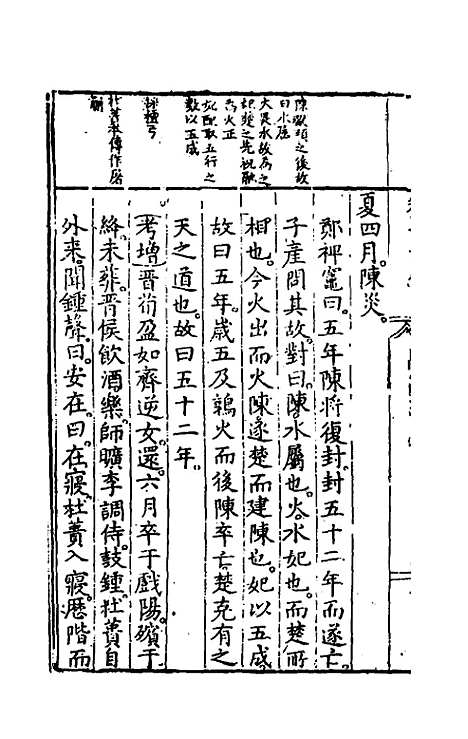 陳顓頊之後故
曰水屬
火畏水故為之
妃楚之先祝融
為火正
妃配取五行之
數以五成
郭檀弓
杜蕢本傳作屠
蒯
夏四月陳災
鄭裨竈曰五年陳將復封封五十二年而遂亡
子產問其故對曰陳水屬也火水妃也而楚所
相也今火出而火陳逐楚而建陳也妃以五成
故曰五年歲五及鶉火而後陳卒亡楚克有之
天之道也故曰五十二年
考增晉荀盈如齊逆女還六月卒于戲陽殯于
絳未葬晉侯飲酒樂師曠李調侍鼓鍾杜蕢自
外來聞鍾聲曰安在曰在寢杜蕢入寢歷階而